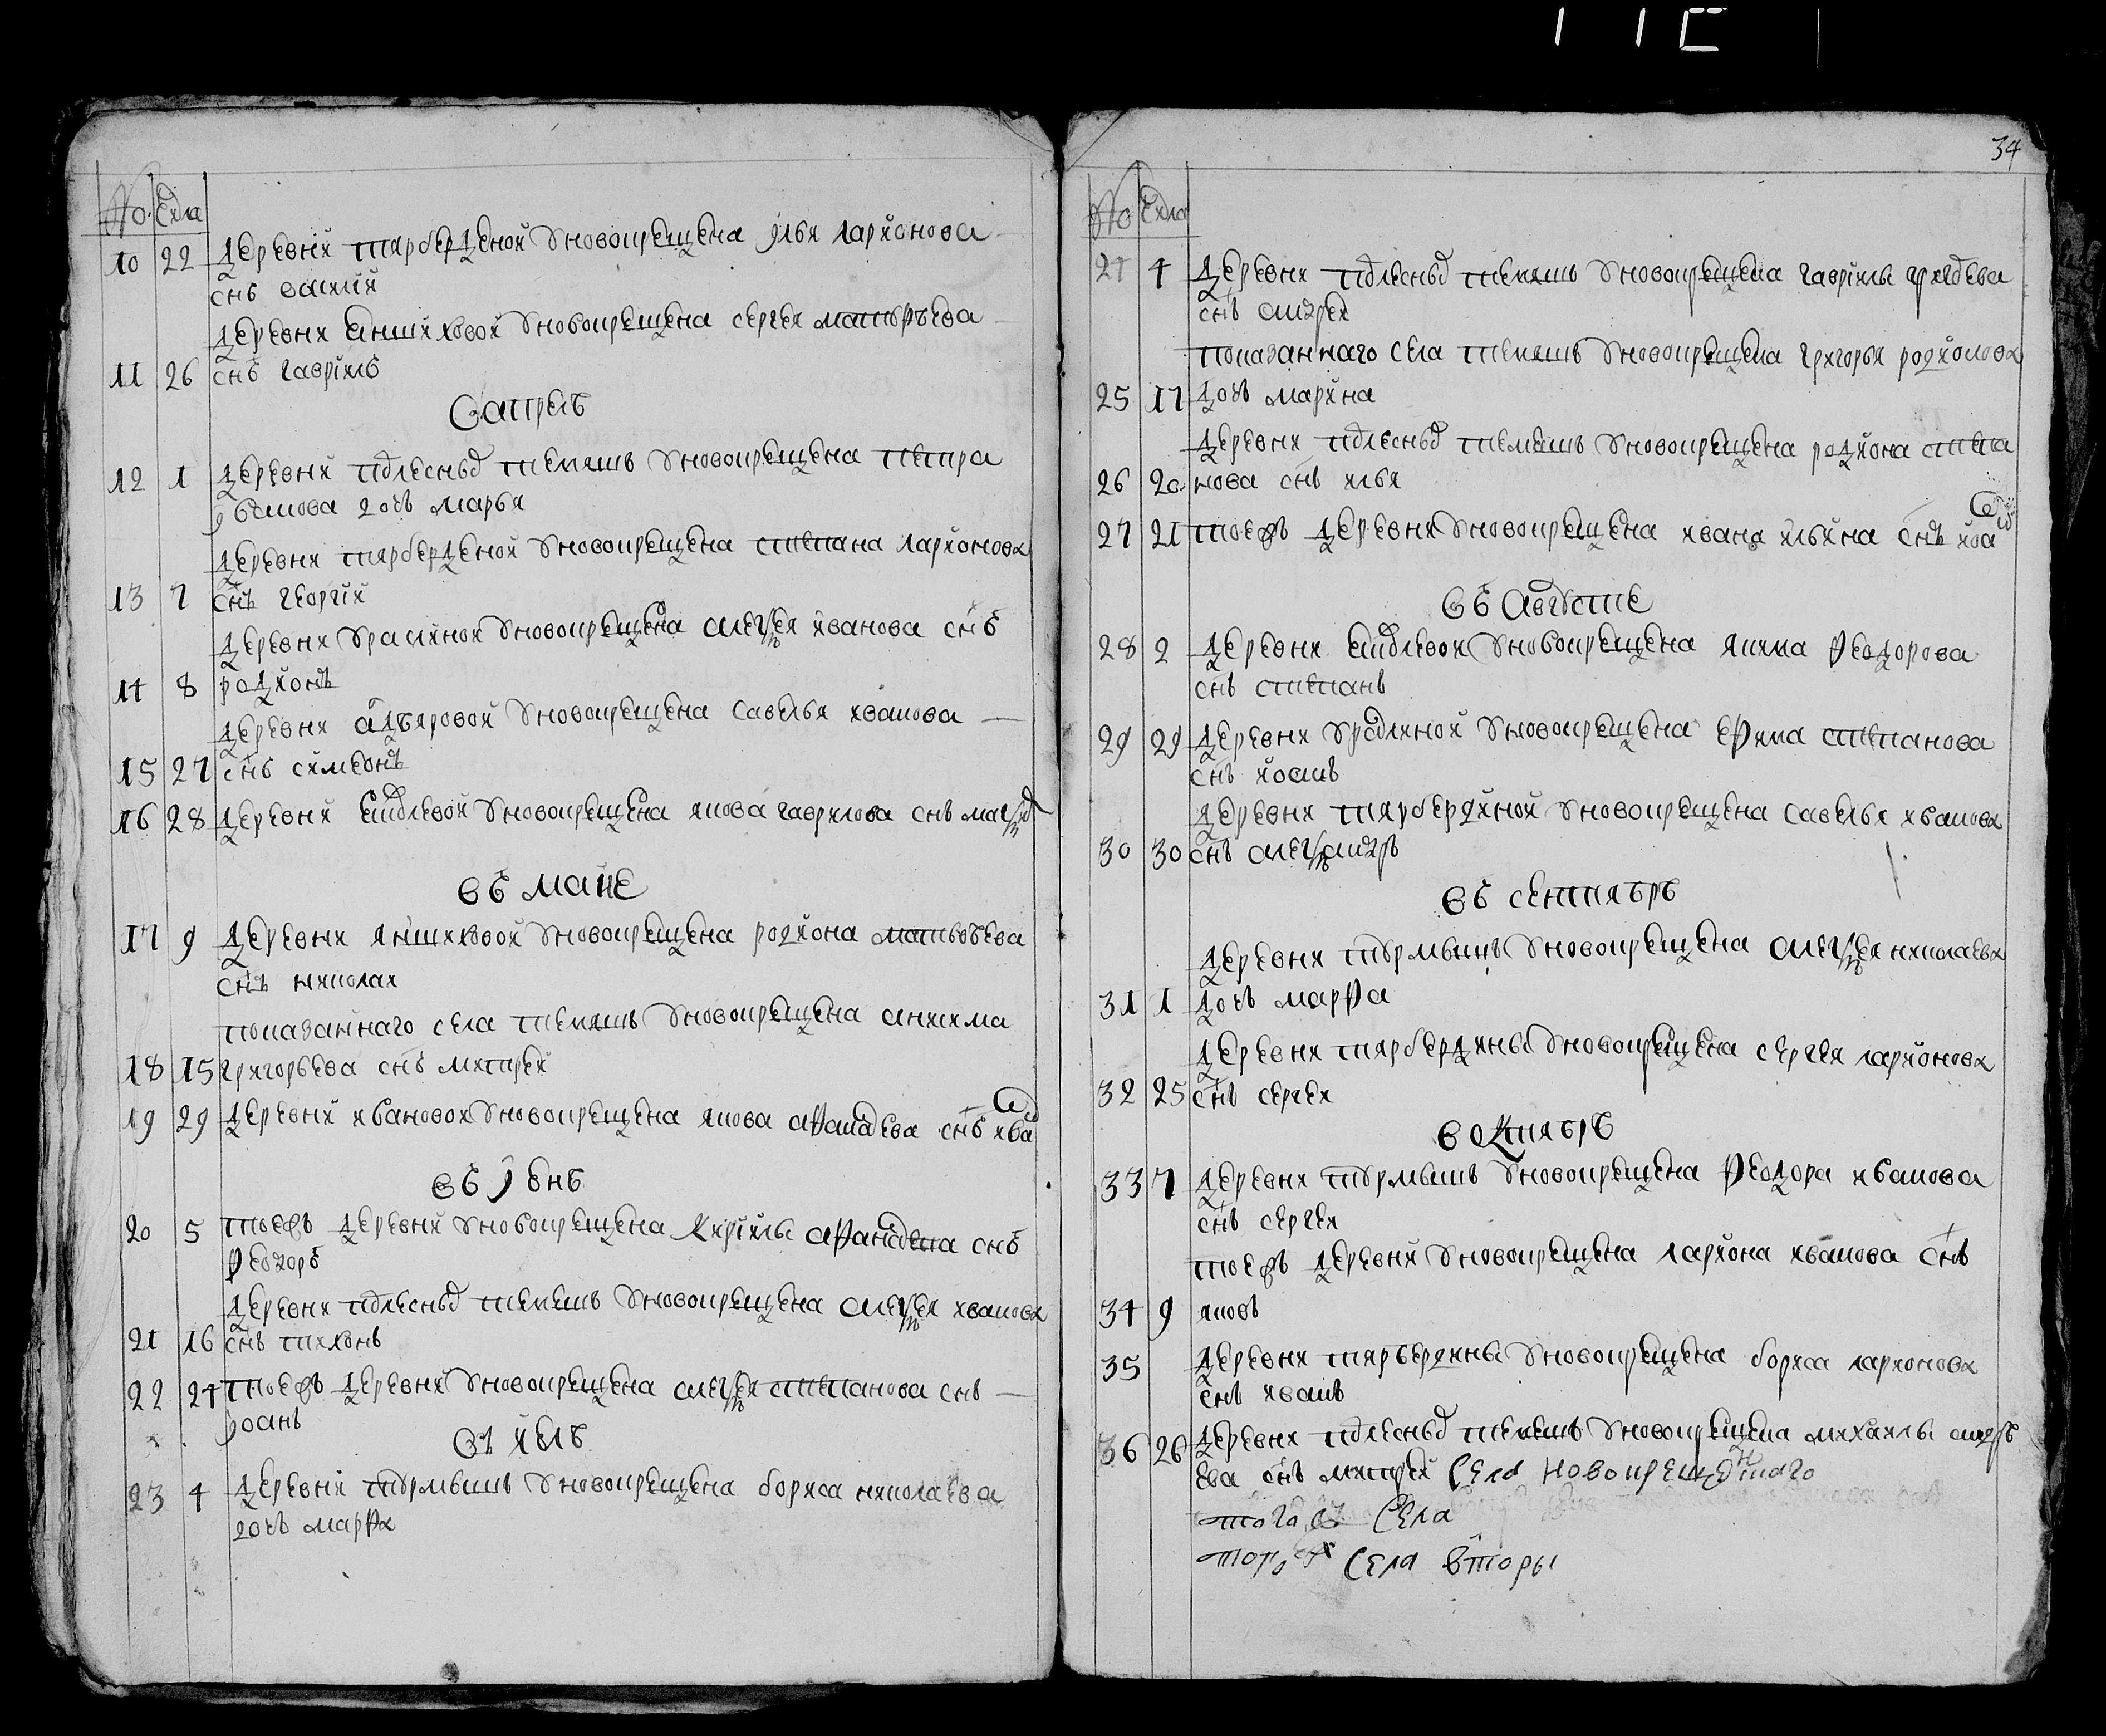 34
No. Числа
10 22 деревни тарберденой у новокрещена илья ларионова
снъ василий
деревни анишиховой у новокрещена сергея матвѣева
11 26 снъ гавриилъ
в апреле
12 1 деревни подлесной темяшъ у новокрещена петра
иванова дочь марья
деревни тарберденой у новокрещена степана ларионова
13 7 снъ георгий
деревни у новокрещена алеѯея иванова снъ
14 8 родионъ
деревни у новокрещена савелья иванова
15 27 снъ симеонъ
16 28 деревни у новокрещена якова гаврилова снъ
въ майе
17 9 деревни янишиховой у новокрещена родиона матвѣева
снъ николай
показаннаго села темяшъ у новокрещена
18 15 григорьева снъ митрей
19 29 деревни ивановой у новокрещена якова афанасева снъ иванъ
въ июнѣ
20 5 тоежъ деревни у новокрещена кирилы афанасева снъ
ѳеодоръ
деревни подлесной темешъ у новокрещена алеѯея иванова
21 16 снъ тихонъ
22 24 тоежъ деревни у новокрещена алеѯея степанова снъ
иоанъ
въ июлѣ
23 4 деревни турмышъ у новокрещена бориса николаева
дочь марѳа
No Числа
24 4 деревни подлесной темяшъ у новокрещена гаврилы
снъ андрей
показаннаго села темяшъ у новокрещена григорья родионова
25 17 дочь марина
деревни подлесной темешъ у новокрещена родиона степа
26 20 нова снъ илья
27 21 тоежъ деревни у новокрещена ивана ильина снъ иоанъ
въ августе
28 2 деревни у новокрещена якима ѳеодорова
снъ степанъ
29 29 деревни у новокрещена ефима степанова
снъ иоанъ
деревни тярбердиной у новокрещена савелья иванова
30 30 снъ алеѯандръ
въ сентябрѣ
деревни турмышъ у новокрещена алеѯея николаева
31 1 дочь марѳа
деревни тярбердины у новокрещена сергея ларионова
32 25 снъ сергей
в октябрѣ
33 7 деревни турмышъ у новокрещена ѳеодора иванова
снъ сергей
тоежъ деревни у новокрещена лариона иванова снъ
34 9 яковъ
35 деревни тярбердины у новокрещена бориса ларионова
снъ иванъ
36 26 деревни подлесной темешъ у новокрещена михаилы андрѣ
ева снъ митрей села новокрещенаго
того села
села вторы